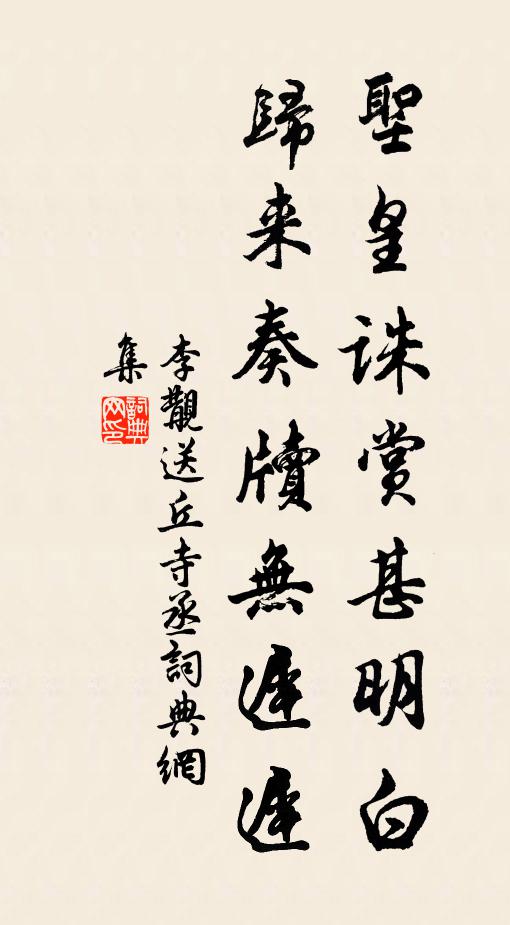 聖皇誅賞甚明白
歸来奏牘無遲遲
李覯送丘寺丞詞典網
集
詞典网印